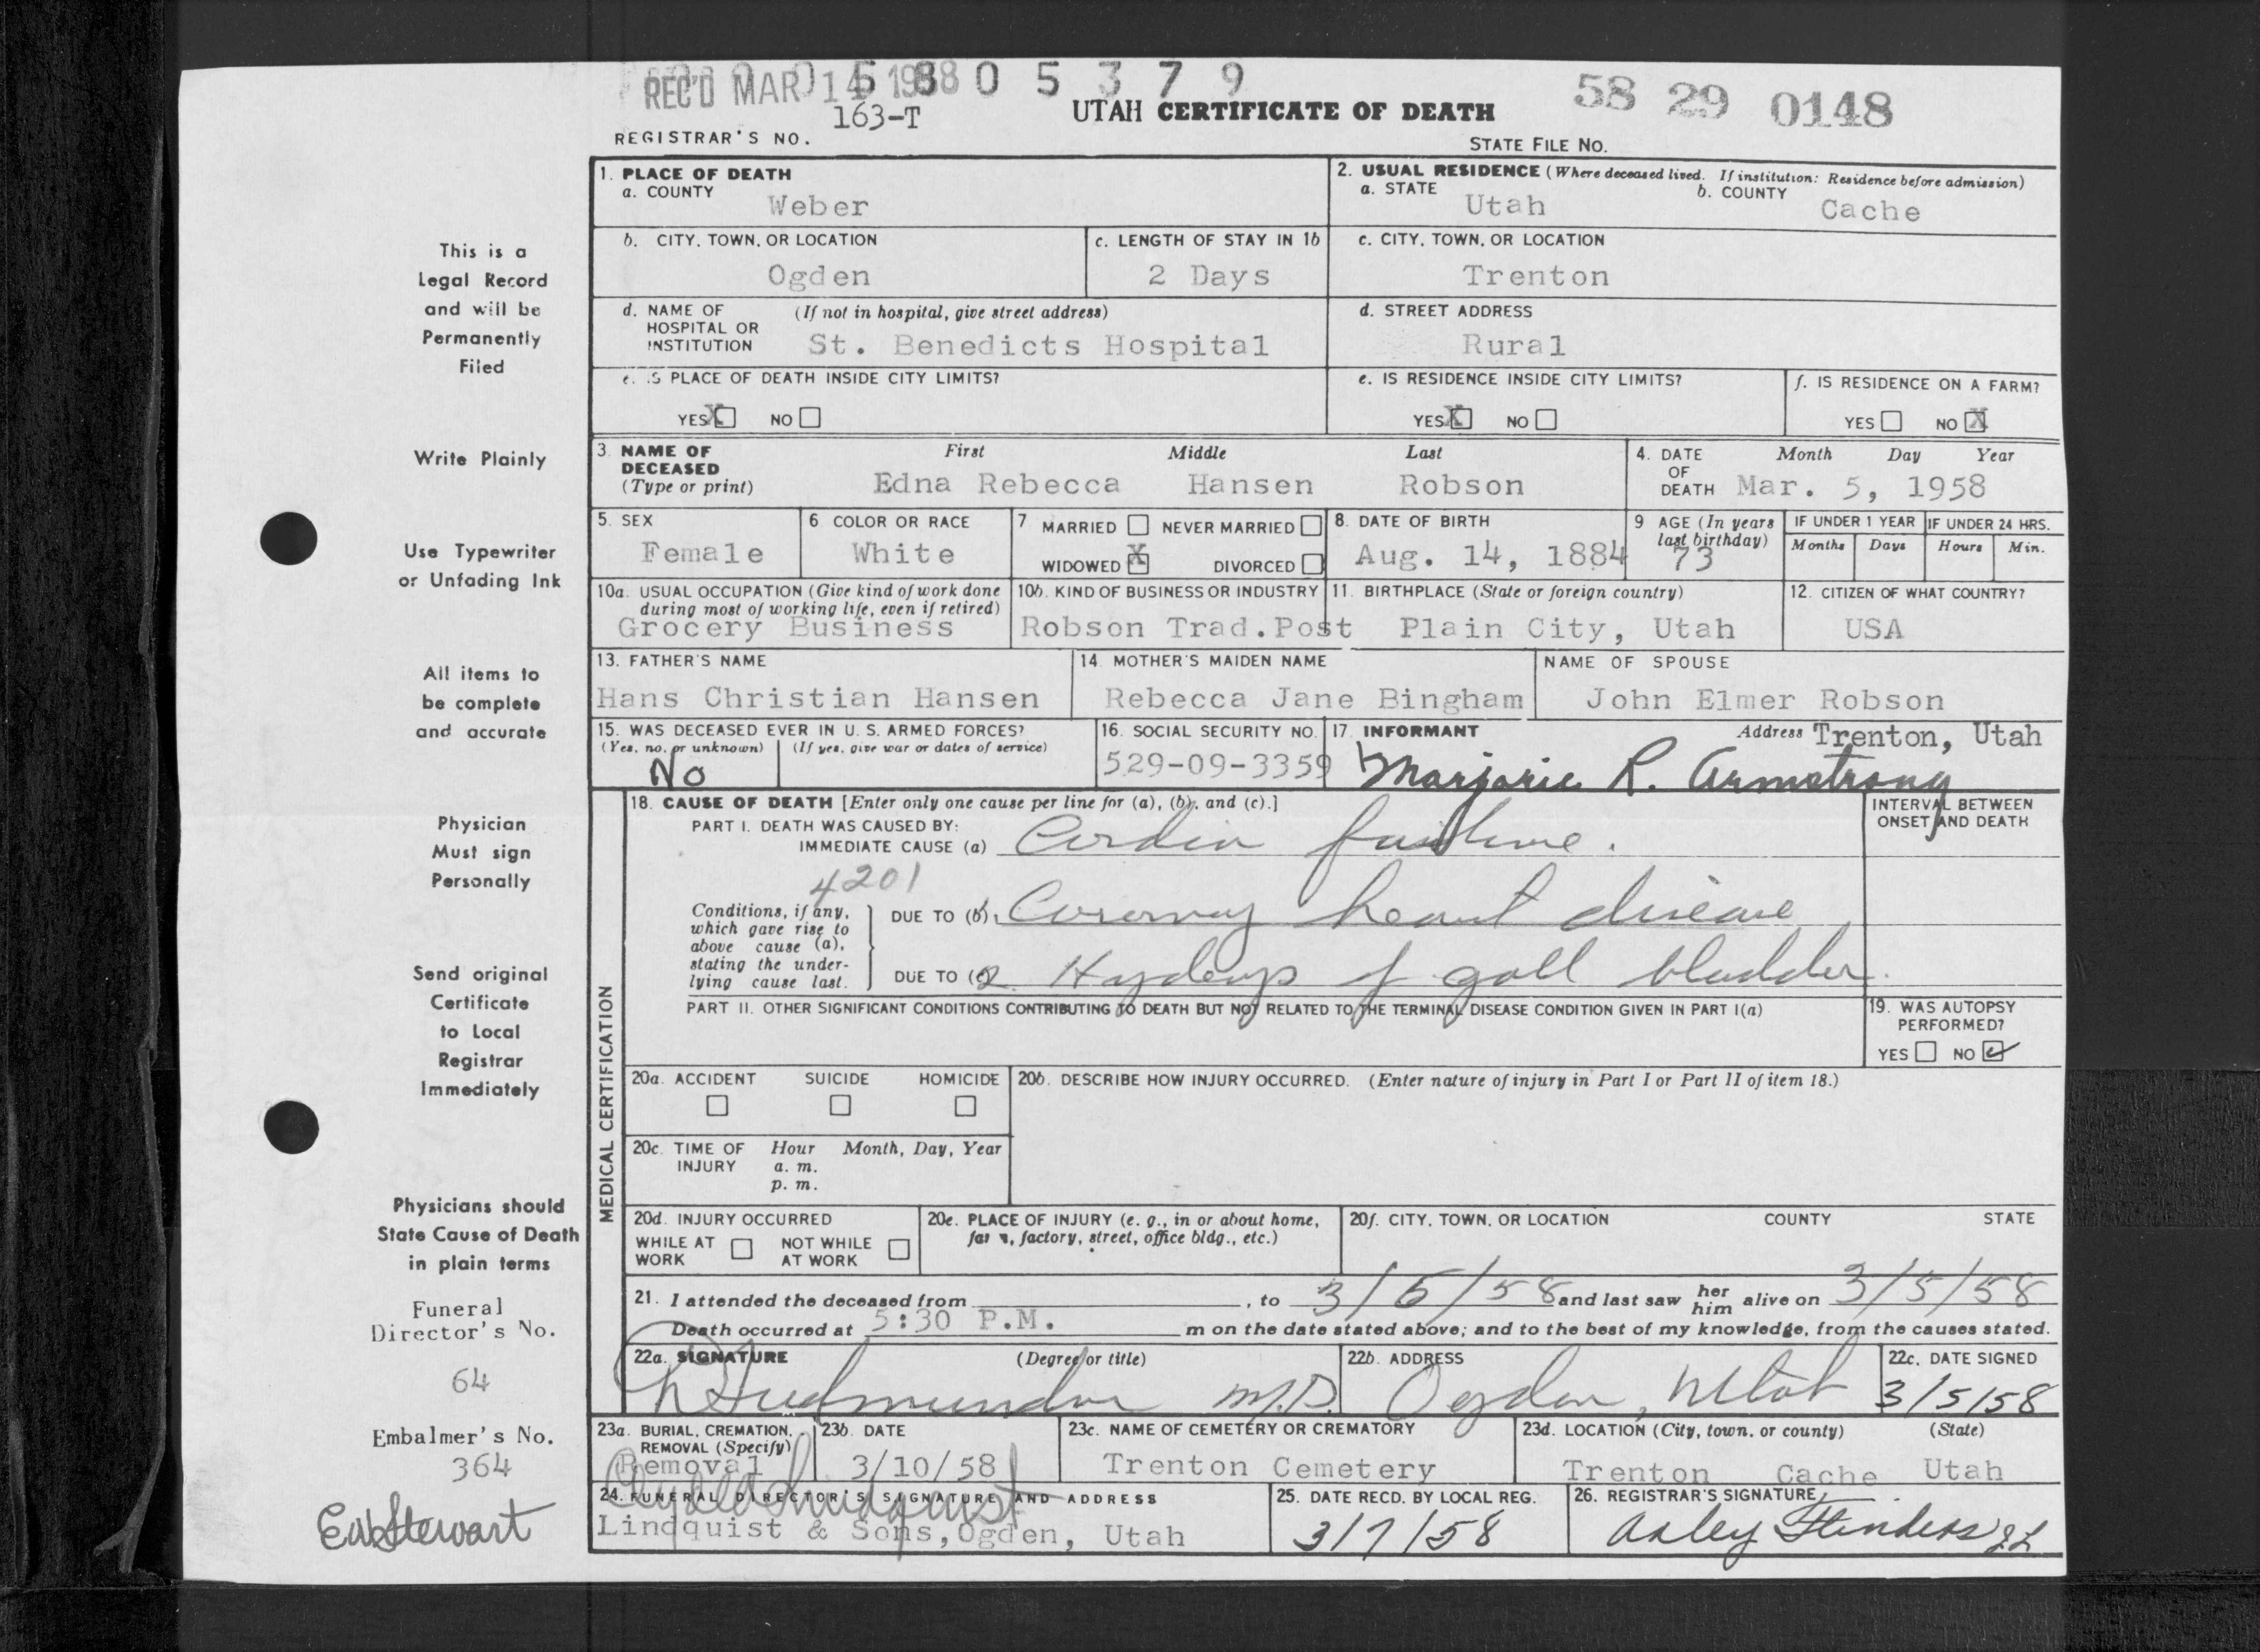 REC'D MAR 14 1958 0 5 3 7 9
58 29 0148
163-T
UTAH CERTIFICATE OF DEATH
REGISTRAR'S NO.
STATE FILE NO.
This is a
Legal Record
and will be
Permanently
Filed
Write Plainly
Use Typewriter
or Unfading Ink
All items to
be complete
and accurate
Physician
Must sign
Personally
Send original
Certificate
to Local
Registrar
Immediately
Physicians should
State Cause of Death
in plain terms
Funeral
Director's No.
64
Embalmer's No.
364
EW Stewart
1. PLACE OF DEATH
a. COUNTY
Weber
2. USUAL RESIDENCE (Where deceased lived. If institution: Residence before admission)
a. STATE Utah b. COUNTY Cache
b. CITY, TOWN, OR LOCATION
Ogden
c. LENGTH OF STAY IN 1b
2 Days
c. CITY, TOWN, OR LOCATION
Trenton
d. NAME OF (If not in hospital, give street address)
HOSPITAL OR
INSTITUTION St. Benedicts Hospital
d. STREET ADDRESS
Rural
e. IS PLACE OF DEATH INSIDE CITY LIMITS?
YES X NO
e. IS RESIDENCE INSIDE CITY LIMITS?
YES X NO
f. IS RESIDENCE ON A FARM?
YES NO X
3. NAME OF First Middle Last
DECEASED
(Type or print) Edna Rebecca Hansen Robson
4. DATE Month Day Year
OF
DEATH Mar. 5, 1958
5. SEX
Female
6 COLOR OR RACE
White
7 MARRIED NEVER MARRIED
WIDOWED X DIVORCED
8. DATE OF BIRTH
Aug. 14, 1884
9 AGE (In years
last birthday)
73
IF UNDER 1 YEAR
Months Days
IF UNDER 24 HRS.
Hours Min.
10a. USUAL OCCUPATION (Give kind of work done
during most of working life, even if retired)
Grocery Business
10b. KIND OF BUSINESS OR INDUSTRY
Robson Trad.Post
11. BIRTHPLACE (State or foreign country)
Plain City, Utah
12. CITIZEN OF WHAT COUNTRY?
USA
13. FATHER'S NAME
Hans Christian Hansen
14. MOTHER'S MAIDEN NAME
Rebecca Jane Bingham
NAME OF SPOUSE
John Elmer Robson
15. WAS DECEASED EVER IN U. S. ARMED FORCES?
(Yes, no, or unknown) (If yes, give war or dates of service)
No
16. SOCIAL SECURITY NO.
529-09-3359
17. INFORMANT Address Trenton, Utah
Marjorie R. Armstrong
MEDICAL CERTIFICATION
18. CAUSE OF DEATH [Enter only one cause per line for (a), (b), and (c).]
PART I. DEATH WAS CAUSED BY:
IMMEDIATE CAUSE (a) failure.
INTERVAL BETWEEN
ONSET AND DEATH
4201
Conditions, if any,
which gave rise to
above cause (a),
stating the under-
lying cause last.
DUE TO (b) Coronary heart disease
DUE TO (c) 2. Hydrops of gall bladder.
PART II. OTHER SIGNIFICANT CONDITIONS CONTRIBUTING TO DEATH BUT NOT RELATED TO THE TERMINAL DISEASE CONDITION GIVEN IN PART I(a)
19. WAS AUTOPSY
PERFORMED?
YES NO ✓
20a. ACCIDENT SUICIDE HOMICIDE
20b. DESCRIBE HOW INJURY OCCURRED. (Enter nature of injury in Part I or Part II of item 18.)
20c. TIME OF Hour Month, Day, Year
INJURY a. m.
p. m.
20d. INJURY OCCURRED
WHILE AT NOT WHILE
WORK AT WORK
20e. PLACE OF INJURY (e. g., in or about home,
farm, factory, street, office bldg., etc.)
20f. CITY, TOWN, OR LOCATION COUNTY STATE
21. I attended the deceased from , to 3/5/58 and last saw her him alive on 3/5/58
Death occurred at 5:30 P.M. m on the date stated above; and to the best of my knowledge, from the causes stated.
22a. SIGNATURE (Degree or title)
M.D.
22b. ADDRESS
Ogden, Utah
22c. DATE SIGNED
3/5/58
23a. BURIAL, CREMATION,
REMOVAL (Specify)
Removal
23b. DATE
3/10/58
23c. NAME OF CEMETERY OR CREMATORY
Trenton Cemetery
23d. LOCATION (City, town, or county) (State)
Trenton Cache Utah
24. FUNERAL DIRECTOR'S SIGNATURE AND ADDRESS
Lindquist & Sons, Ogden, Utah
25. DATE RECD. BY LOCAL REG.
3/7/58
26. REGISTRAR'S SIGNATURE